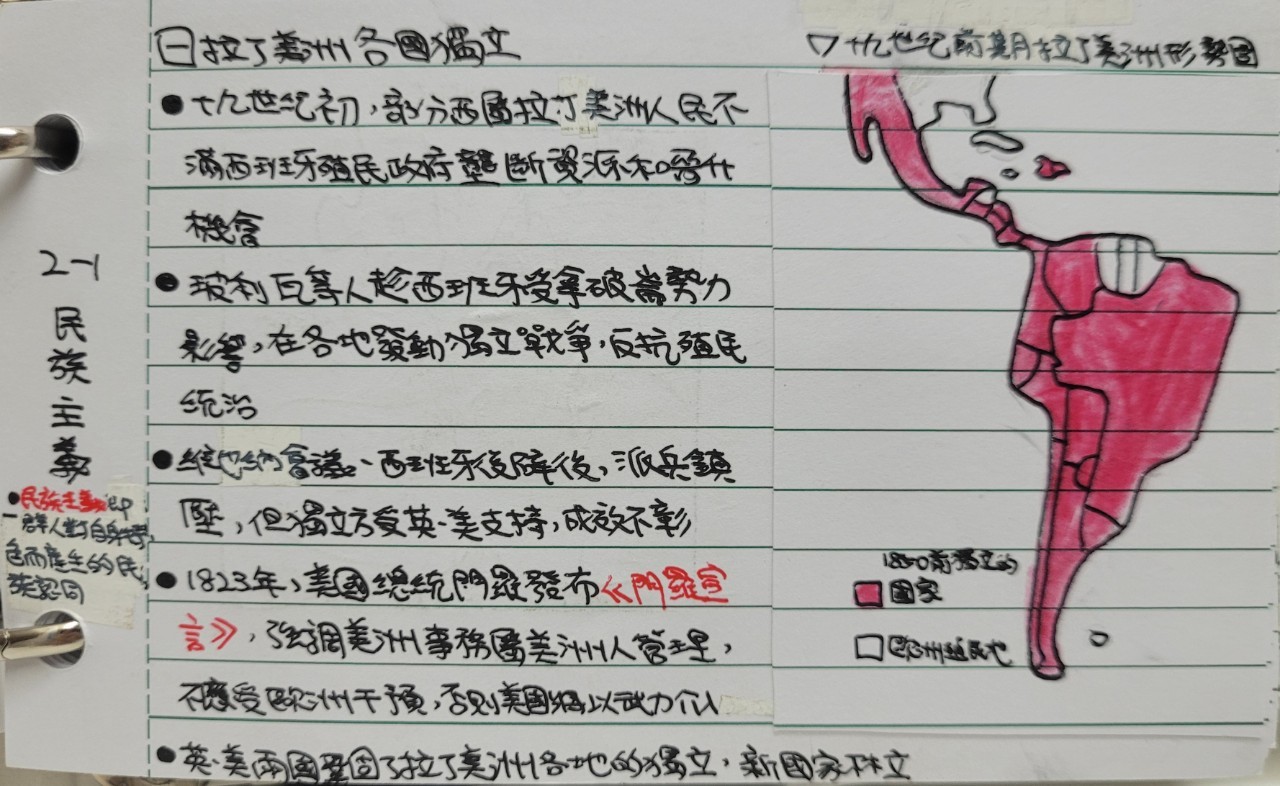 2-1
民族主義
•民族主義即
一群人對自身特
色而產生的民
族認同
㊀拉丁美洲各國獨立
●十九世紀初，部分西屬拉丁美洲人民不
滿西班牙殖民政府壟斷資源和晉升
機會
●玻利瓦等人趁西班牙受拿破崙勢力
影響，在各地發動獨立戰爭，反抗殖民
統治
●維也納會議、西班牙復辟後，派兵鎮
壓，但獨立方受英、美支持，成效不彰
●1823年，美國總統門羅發布《門羅宣
言》，強調美洲事務屬美洲人管理，
不應受歐洲干預，否則美國將以武力介入
●英、美兩國鞏固了拉丁美洲各地的獨立，新國家林立
▽十九世紀前期拉丁美洲形勢圖
1850前獨立的
國家
歐洲殖民地